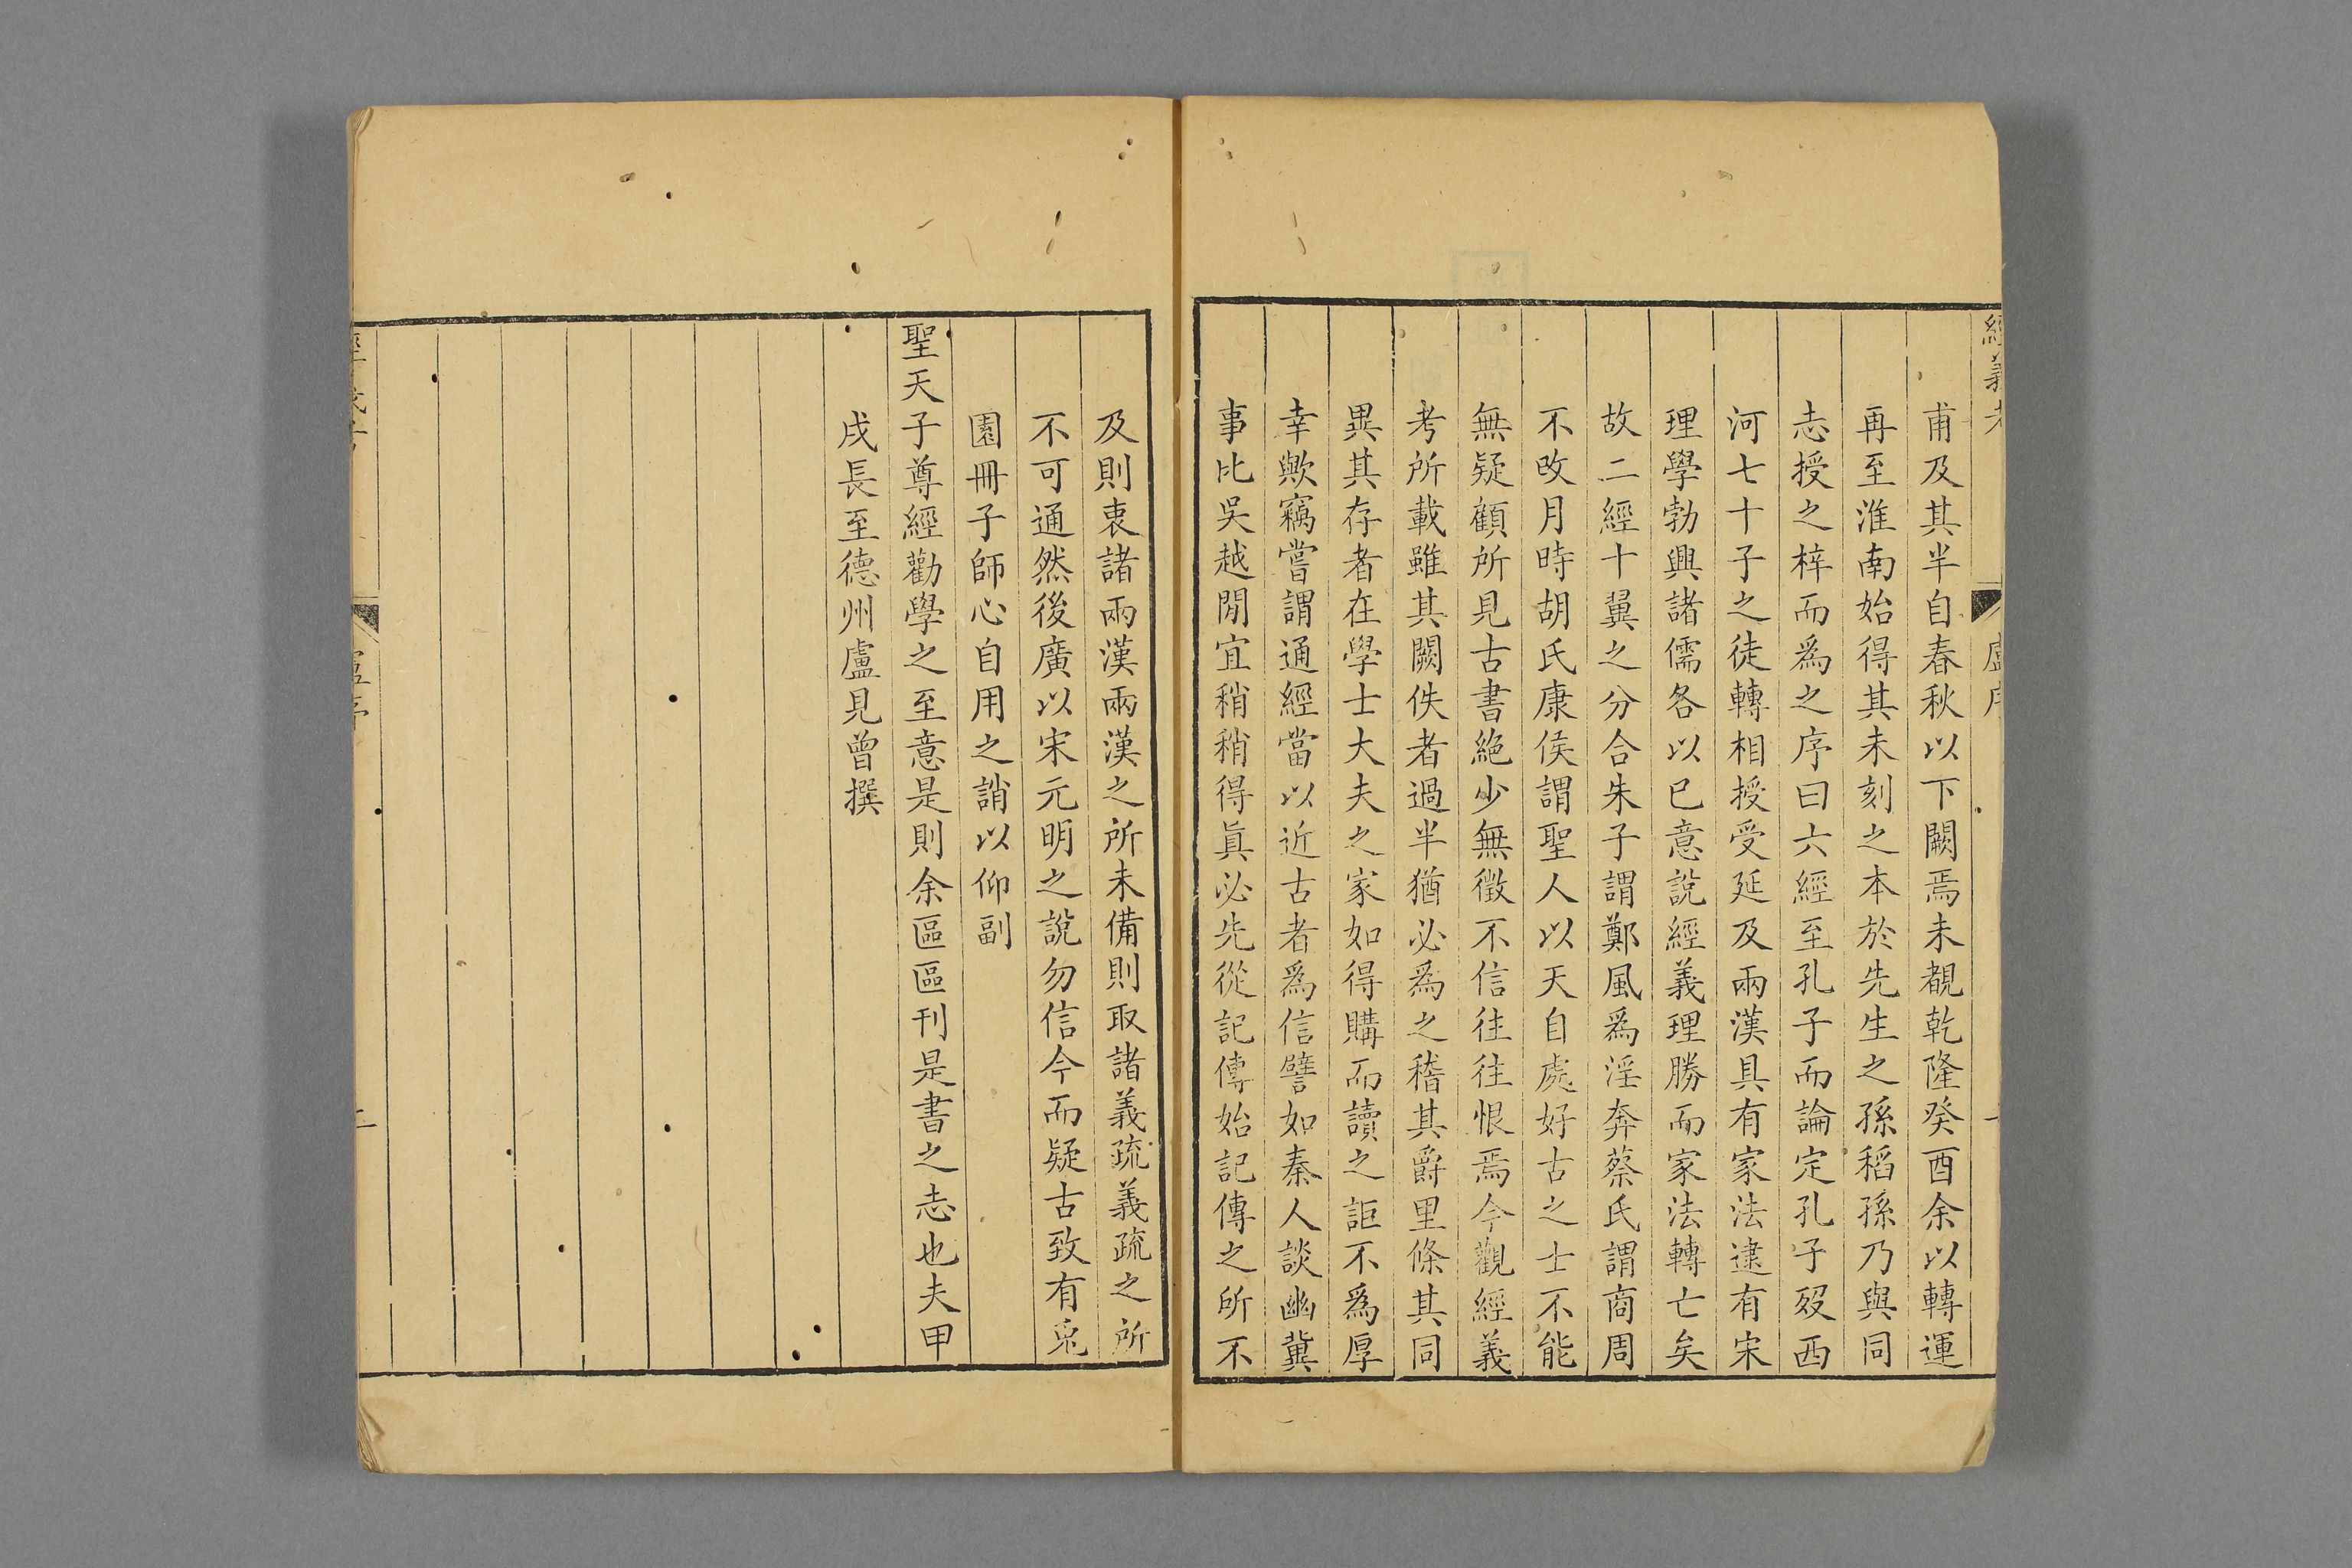 經義考 盧序
甫及其半自春秋以下闕焉未覩乾隆癸酉余以轉運
再至淮南始得其未刻之本於先生之孫稻孫乃與同
志授之梓而爲之序曰六經至孔子而論定孔子歿西
河七十子之徒轉相授受延及兩漢具有家法逮有宋
理學勃興諸儒各以已意說經義理勝而家法轉亡矣
故二經十翼之分合朱子謂鄭風爲淫奔蔡氏謂商周
不改月時胡氏康侯謂聖人以天自處好古之士不能
無疑顧所見古書絶少無徵不信往往恨焉今觀經義
考所載雖其闕佚者過半猶必爲之稽其爵里條其同
異其存者在學士大夫之家如得購而讀之詎不爲厚
幸歟竊嘗謂通經當以近古者爲信譬如秦人談幽冀
事比吳越閒宜稍稍得眞必先從記傳始記傳之所不
及則衷諸兩漢兩漢之所未備則取諸義疏義疏之所
不可通然後廣以宋元明之說勿信今而疑古致有兎
園冊子師心自用之誚以仰副
聖天子尊經勸學之至意是則余區區刊是書之志也夫甲
戌長至德州盧見曾撰